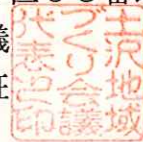 議
任
土沢地域
づくり会議
代表之印